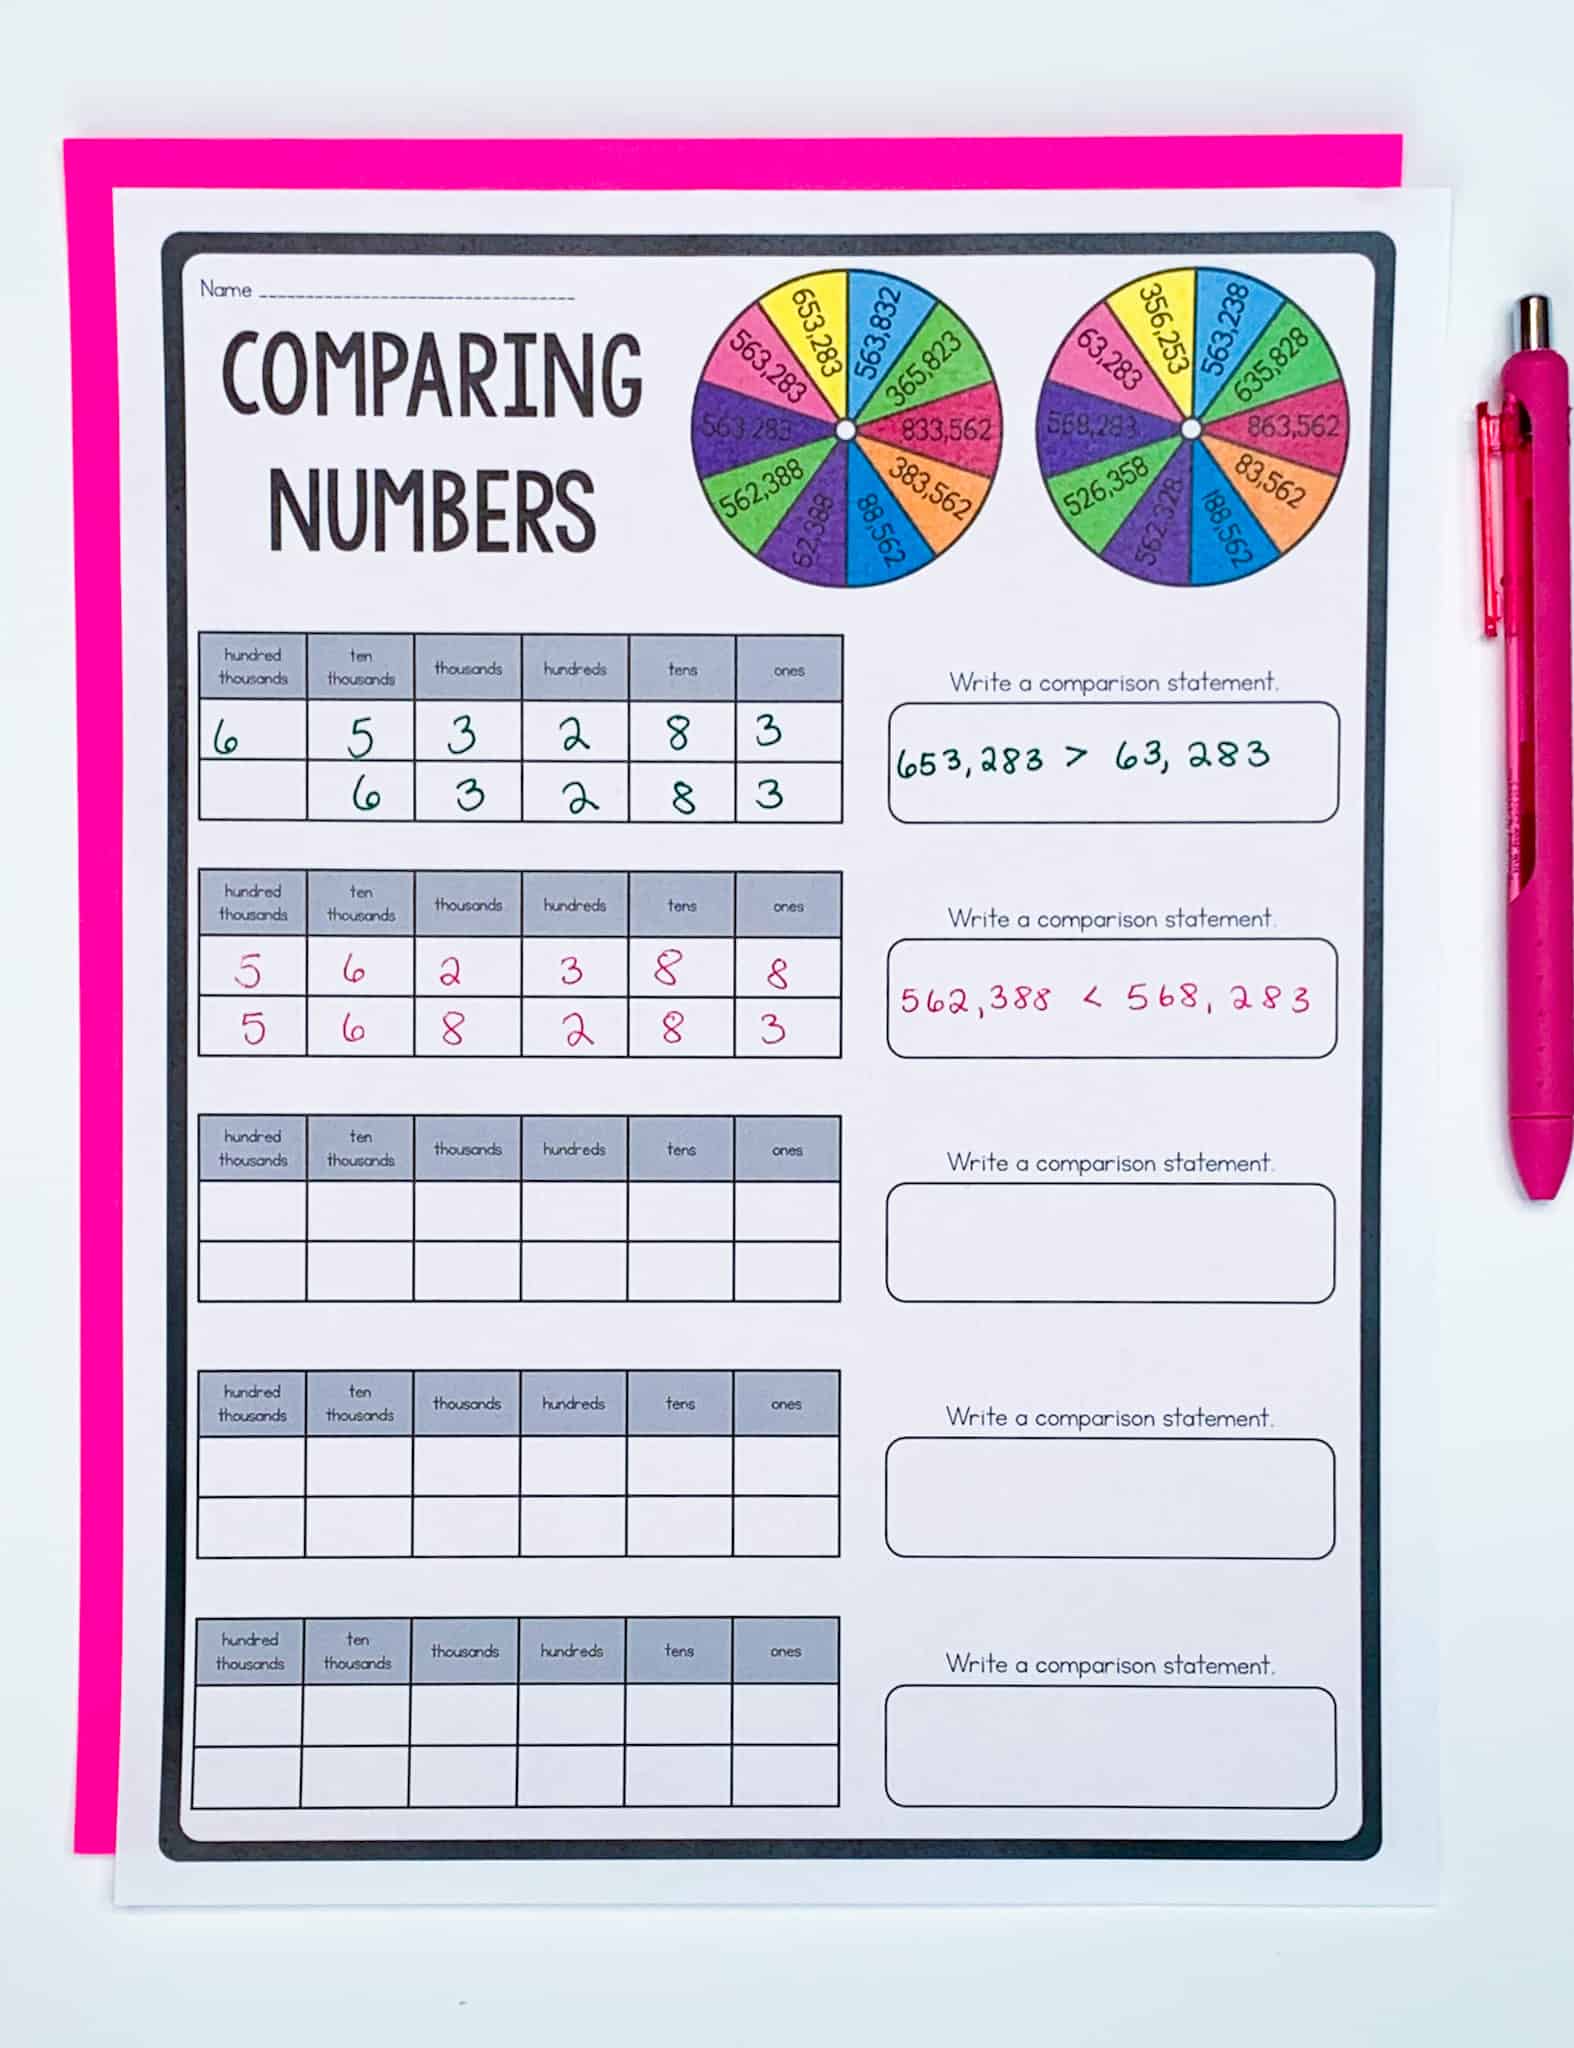 Name
COMPARING
NUMBERS
653,283
563,832
365,823
833,562
383,562
88,562
62,388
562,388
563,283
356,253
563,238
635,828
863,562
83,562
188,562
562,328
526,358
568,283
63,283
hundred thousands ten thousands thousands hundreds tens ones
6 5 3 2 8 3
6 3 2 8 3
Write a comparison statement.
653,283 > 63, 283
hundred thousands ten thousands thousands hundreds tens ones
5 6 2 3 8 8
5 6 8 2 8 3
Write a comparison statement.
562,388 < 568, 283
hundred thousands ten thousands thousands hundreds tens ones
Write a comparison statement.
hundred thousands ten thousands thousands hundreds tens ones
Write a comparison statement.
hundred thousands ten thousands thousands hundreds tens ones
Write a comparison statement.